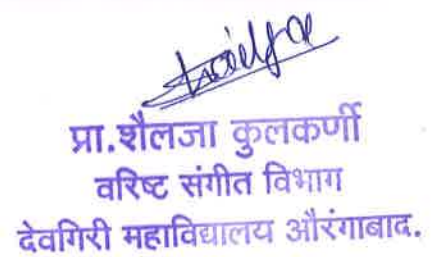 प्रा.शैलजा कुलकर्णी
वरिष्ट संगीत विभाग
देवगिरी महाविद्यालय औरंगाबाद.